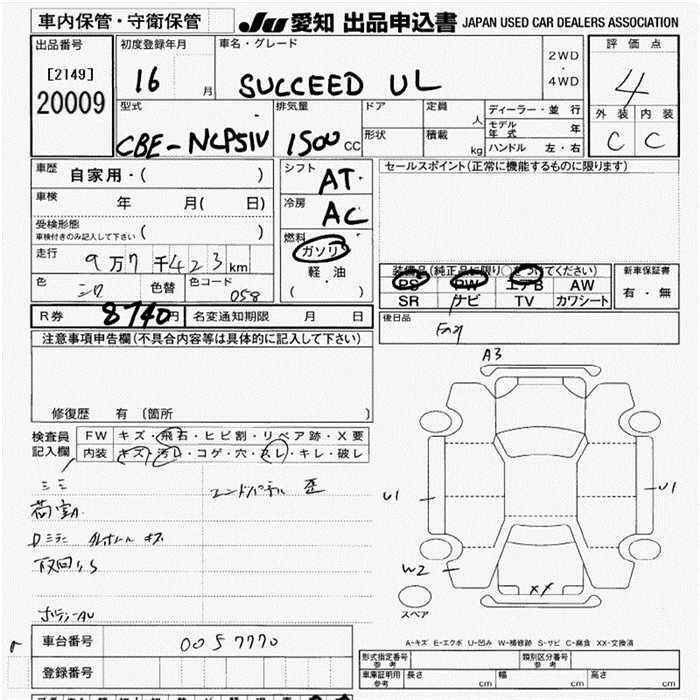 車内保管・守衛保管
JU 愛知 出品申込書 JAPAN USED CAR DEALERS ASSOCIATION
出品番号 初度登録年月 車名・グレード 評価点
[2149] 16 月 SUCCEED UL 2WD・4WD 4
20009 型式 排気量 ドア 定員 人 ディーラー・並行 外装 内装
CBE-NCP51V 1500 CC 形状 積載 kg モデル年式 年 C C
ハンドル 左・右
車歴 自家用・( ) シフト AT セールスポイント(正常に機能するものに限ります)
車検 年 月( 日) 冷房 AC
受検形態 ( )
車検付きのみ記入して下さい
燃料 ガソリン
走行 9万7千423km 軽油
装備品(純正品に限り○をつけてください) 新車保証書
色 シロ 色替 色コード 058 ( ・ ) PS PW エアB AW 有・無
SR ナビ TV カワシート
R券 8740円 名変通知期限 月 日 後日品
注意事項申告欄(不具合内容等は具体的に記入して下さい)
A3
修復歴 有 (箇所 )
検査員 FW キズ・飛石・ヒビ割・リペア跡・X要
記入欄 内装 キズ・汚レ・コゲ・穴・スレ・キレ・破レ
エンドパネル 歪
U1 U1
荷室A
Dミラー
W2 XX
スペア
A-キズ E-エクボ U-凹み W-補修跡 S-サビ C-腐食 XX-交換済
車台番号 0057770
形式指定番号 参考 類別区分番号 参考
登録番号 車庫証明用 参考 長さ cm 幅 cm 高さ cm